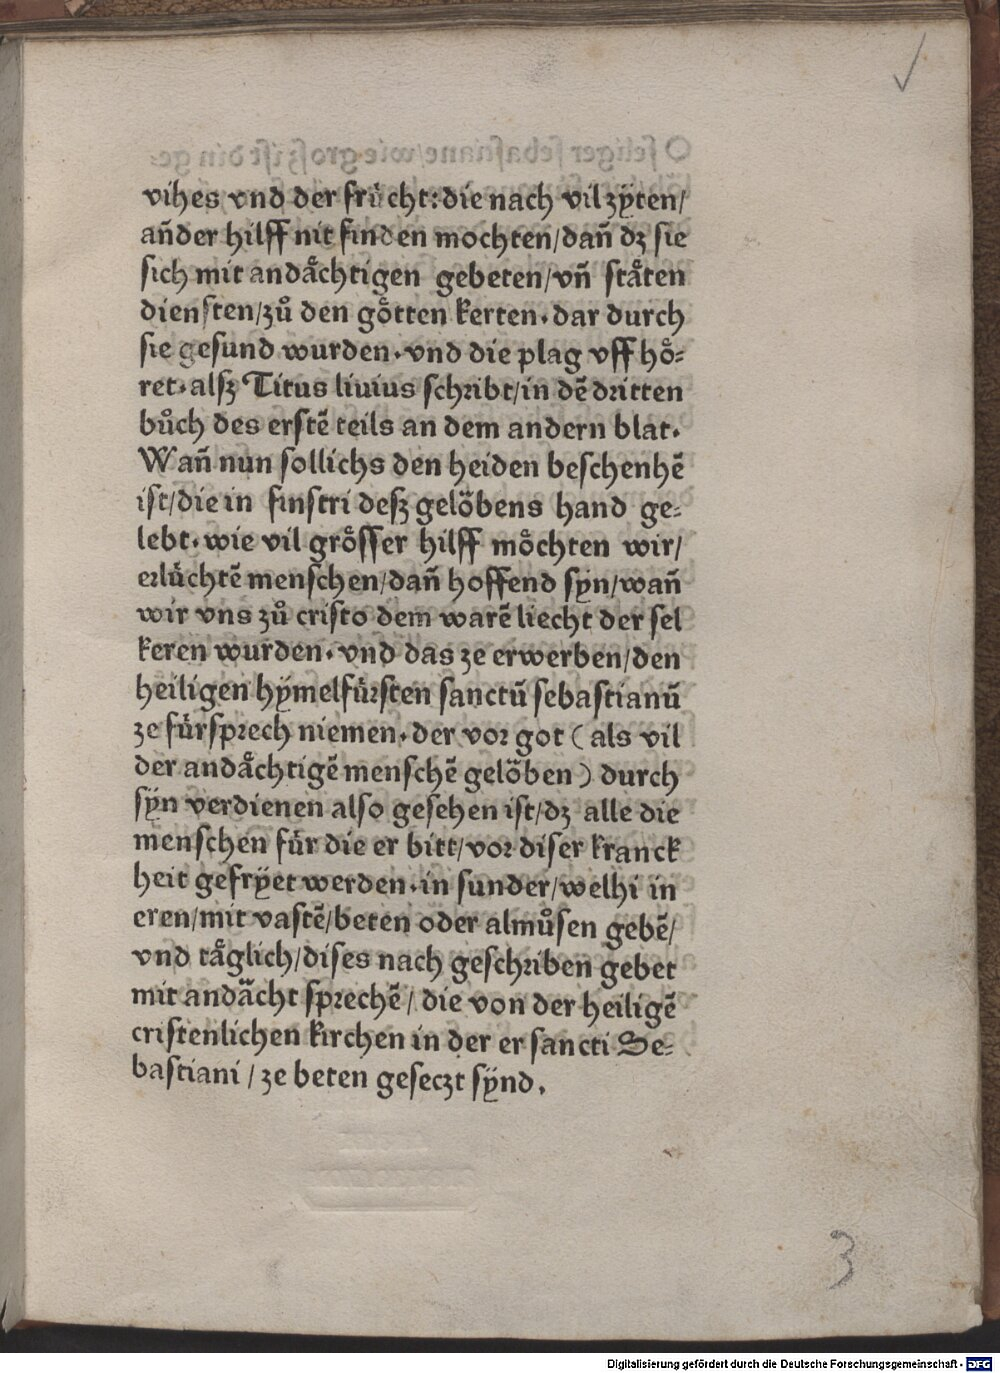 vihes vnd der frücht: die nach vil zÿten/
an̄der hilff nit finden mochten/dan̄ dz sie
sich mit andåchtigen gebeten/vn̄ ståten
diensten/zů den goͤtten kerten. dar durch
sie gesund wurden. vnd die plag vff hoͤ⸗
ret. alsz Titus liuius schribt/in dē dritten
bůch des erstē teils an dem andern blat.
Wan̄ nun sollichs den heiden beschenhē
ist/die in finstri desz geloͤbens hand ge⸗
lebt. wie vil groͤsser hilff moͤchten wir/
erlüchtē menschen/dan̄ hoffend sÿn/wan̄
wir vns zů cristo dem warē liecht der sel
keren wurden. vnd das ze erwerben/den
heiligen hÿmelfürsten sanctū sebastianū
ze fürsprech niemen. der vor got ( als vil
der andåchtigē menschē geloͤben ) durch
sÿn verdienen also gesehen ist/dz alle die
menschen für die er bitt/vor diser kranck
heit gefrÿet werden. in sunder/welhi in
eren/mit vastē/beten oder almůsen gebē/
vnd tåglich/dises nach geschriben gebet
mit andåcht sprechē/ die von der heiligē
cristenlichen kirchen in der er sancti Se⸗
bastiani / ze beten geseczt sÿnd.
3
Digitalisierung gefördert durch die Deutsche Forschungsgemeinschaft - DFG